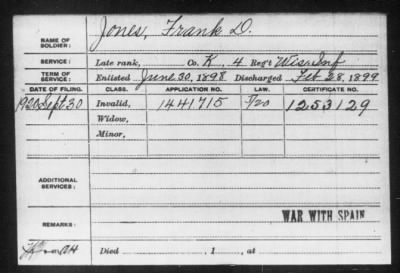 NAME OF SOLDIER: Jones, Frank D.
SERVICE: Late rank, Co. K, 4 Reg't Wis. Inf
TERM OF SERVICE: Enlisted June 30, 1898 Discharged Feb 28, 1899
DATE OF FILING. CLASS. APPLICATION NO. LAW. CERTIFICATE NO.
1920 Sept 30 Invalid, 1441715 1253129
Widow,
Minor,
ADDITIONAL SERVICES:
WAR WITH SPAIN
REMARKS:
Died , 1 , at